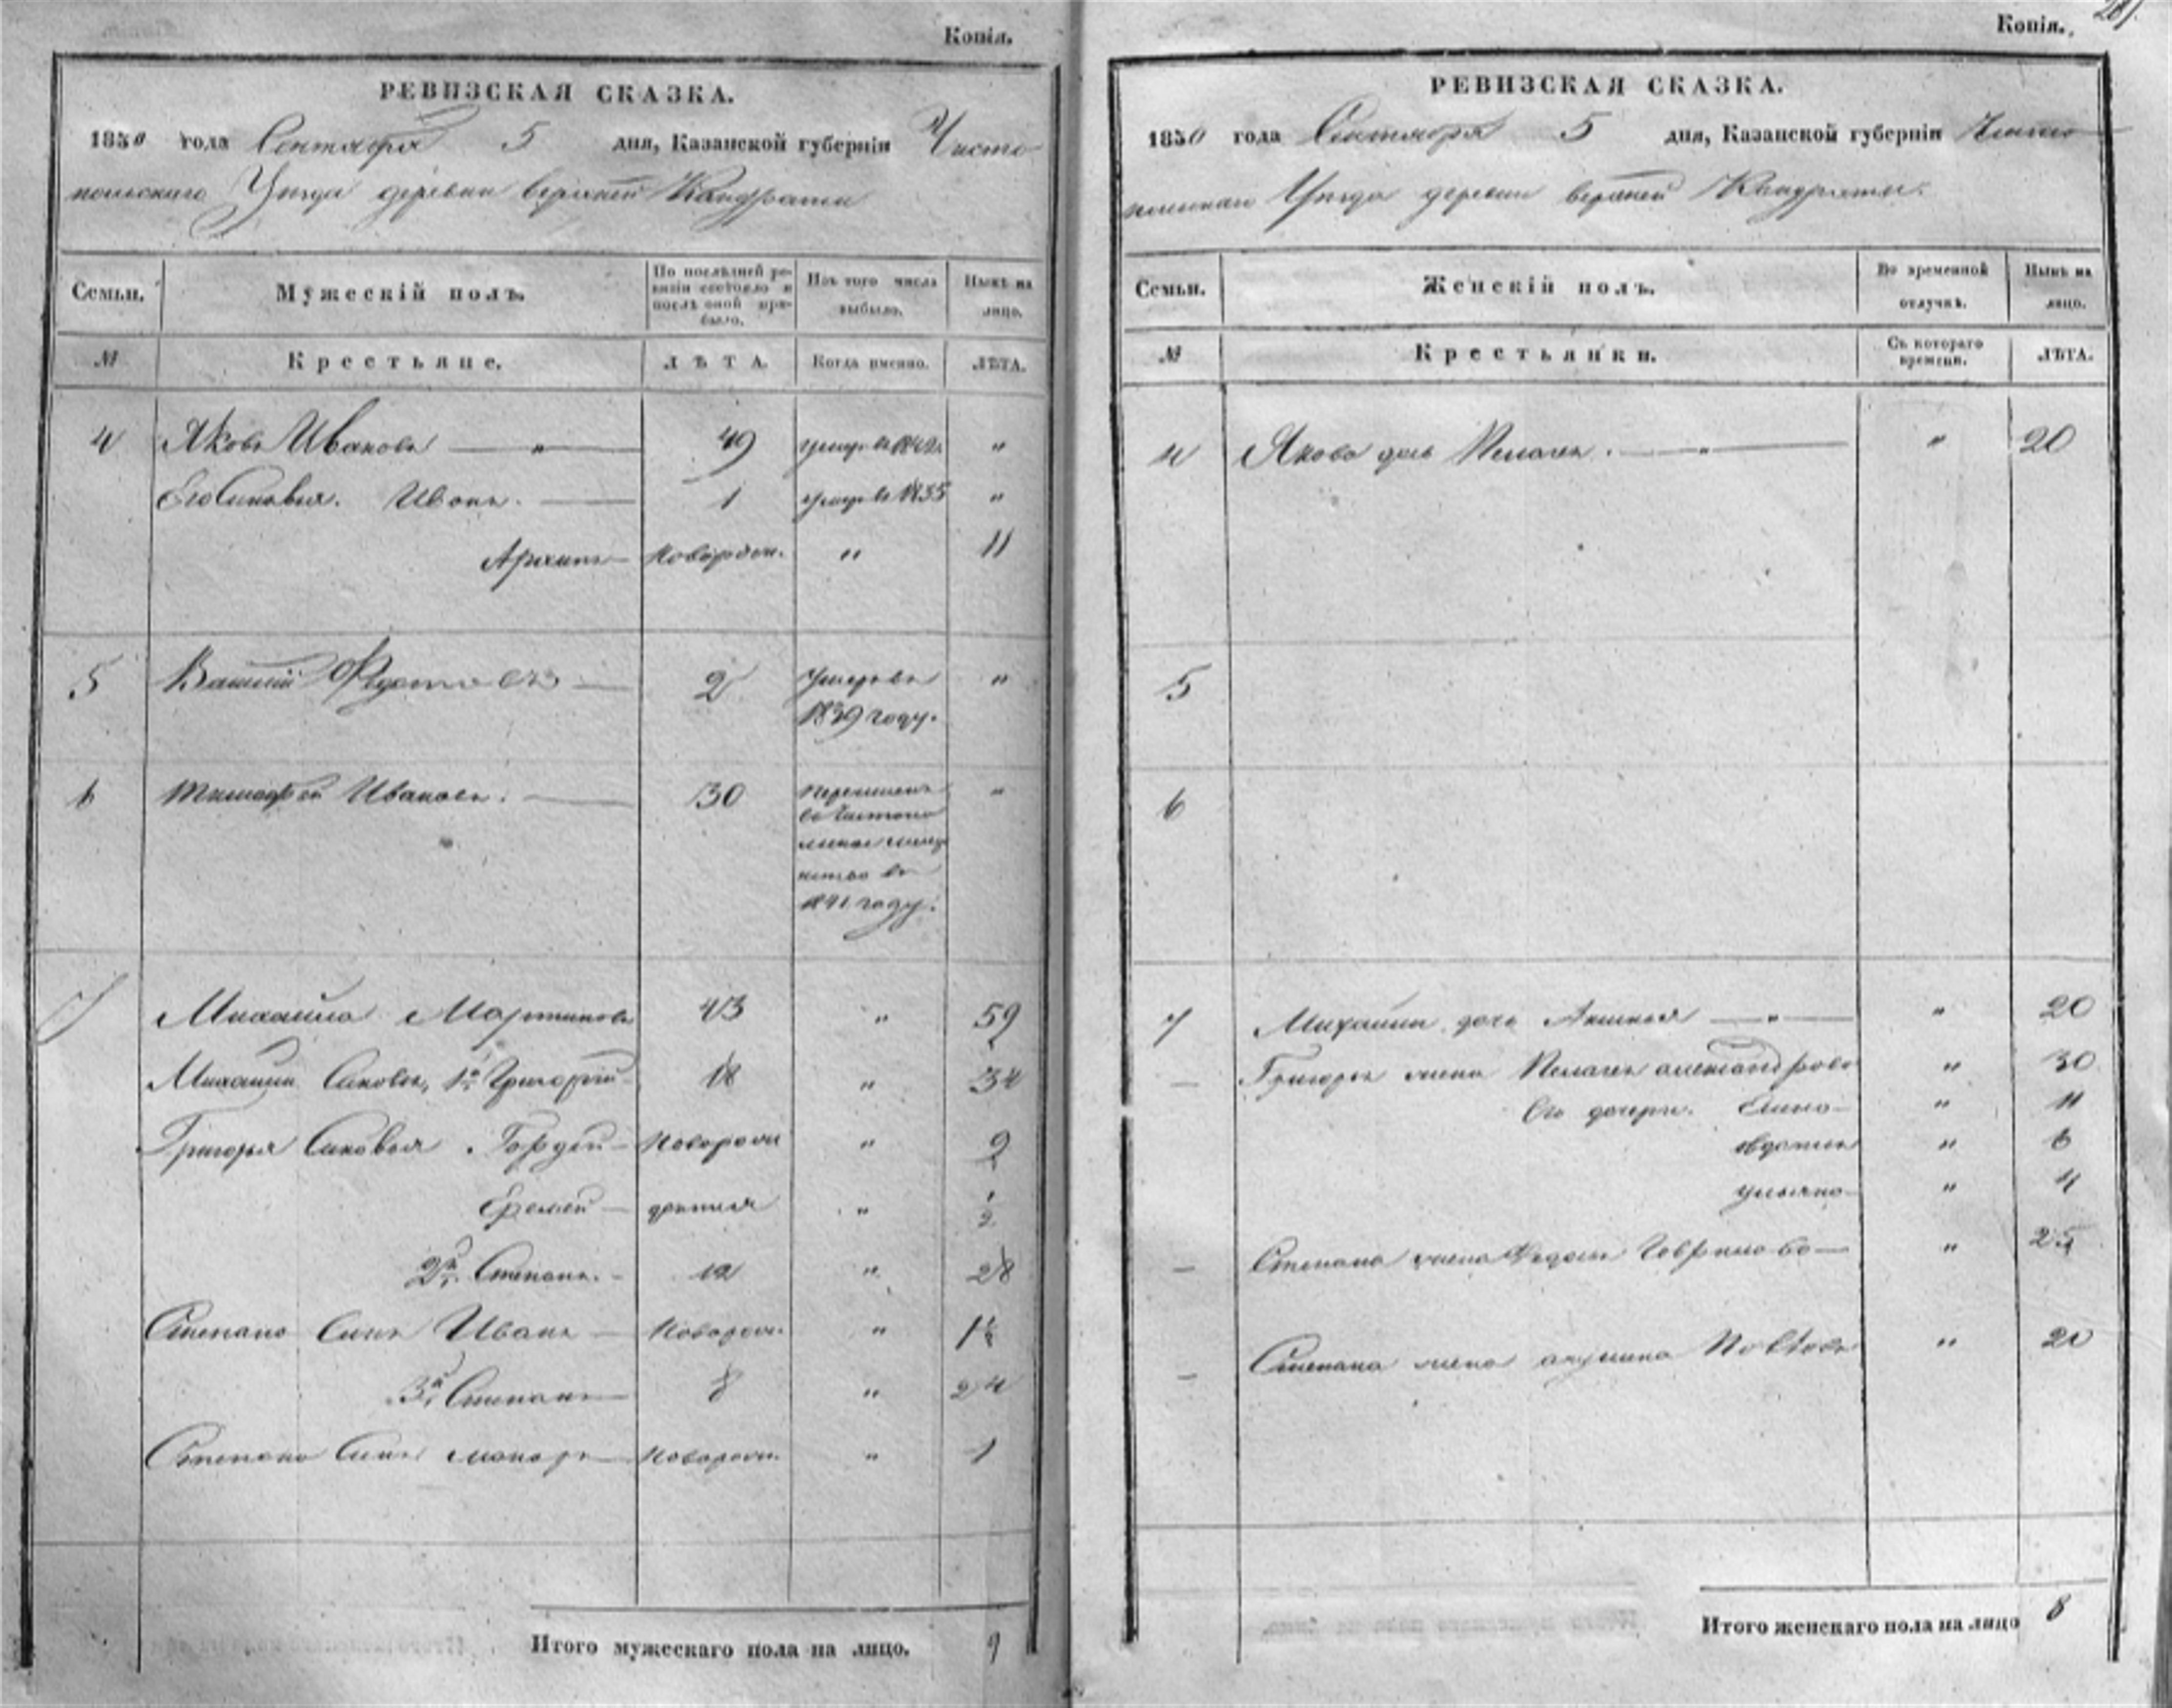 Копія.
РЕВИЗСКАЯ СКАЗКА.
1850 года Сентября 5 дня, Казанской губерніи Чисто
польскаго Уезда деревни верхней Кондраты
Семьи.
Мужескій полъ.
По послѣдней ре-
визіи состояло и
послѣ оной при-
было.
Изъ того числа
выбыло.
Нынѣ на
лицо.
№
Крестьяне.
ЛѢТА.
Когда именно.
ЛѢТА.
4 Яковъ Ивановъ — " — 49 умер. въ 1842 "
Его Сыновья. Иванъ. — 1 умер. въ 1835 "
Архипъ — новорожд. " 11
5 Василій Федотовъ — 2 Умеръ въ "
1839 году.
6 Тимофей Ивановъ. — 30 перешелъ "
въ Чистопо
въ
1841 году.
7 Михайла Мартыновъ 43 " 59
Михайлы Сыновья, 1й Григорій 18 " 34
Григорья Сыновья Гордей — новорожд " 9
Еремей — " 1/2
2й. Степанъ. - 12 " 28
Степана Сынъ Иванъ — новорожд. " 1 1/2
3й Степанъ — 8 " 24
Степана Сынъ макаръ — новорожд. " 1
Итого мужескаго пола на лицо. 9
Копія.
РЕВИЗСКАЯ СКАЗКА.
1850 года Сентября 5 дня, Казанской губерніи Чисто
польскаго Уезда деревни верхней Кондраты.
Семьи.
Женскій полъ.
Во временной
отлучкѣ.
Нынѣ на
лицо.
№
Крестьянки.
Съ котораго
времени.
ЛѢТА.
4 Якова дочь Пелагея. — " — " 20
5
6
7 Михайлы дочь Аксинья — " — " 20
— Григорья жена Пелагея александрова " 30
Его дочери. Елена — " 11
овдотья " 6
ульяна — " 4
— Степана жена Федосья Гаврилова — " 25
— Степана жена " 20
Итого женскаго пола на лицо 8